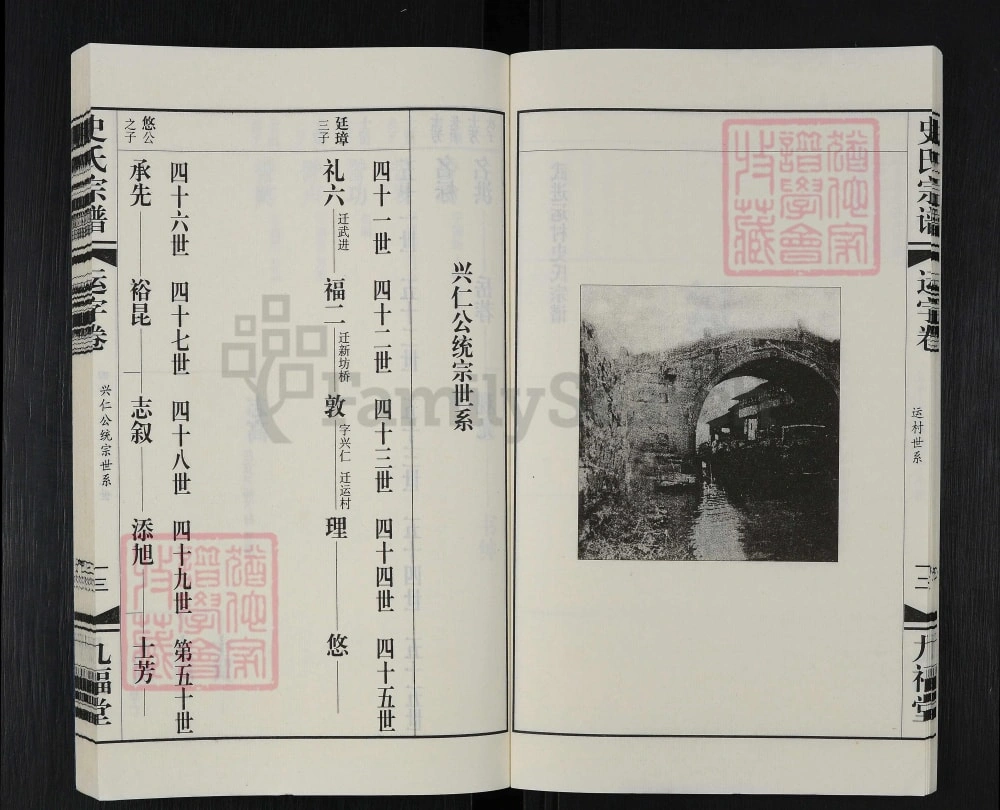 史氏宗谱
运字卷
运村世系
一二
九福堂
猶他家
譜學會
特藏
FamilySe
兴仁公统宗世系
四十一世 四十二世 四十三世 四十四世 四十五世
廷璋
三子
礼六 迁武进 福二 迁新坊桥 敦 字兴仁 迁运村 理 悠
四十六世 四十七世 四十八世 四十九世 第五十世
悠公
之子
承先 裕昆 志叙 添旭 士芳
史氏宗谱
运字卷
兴仁公统宗世系
一三
九福堂
猶他家
譜學會
特藏